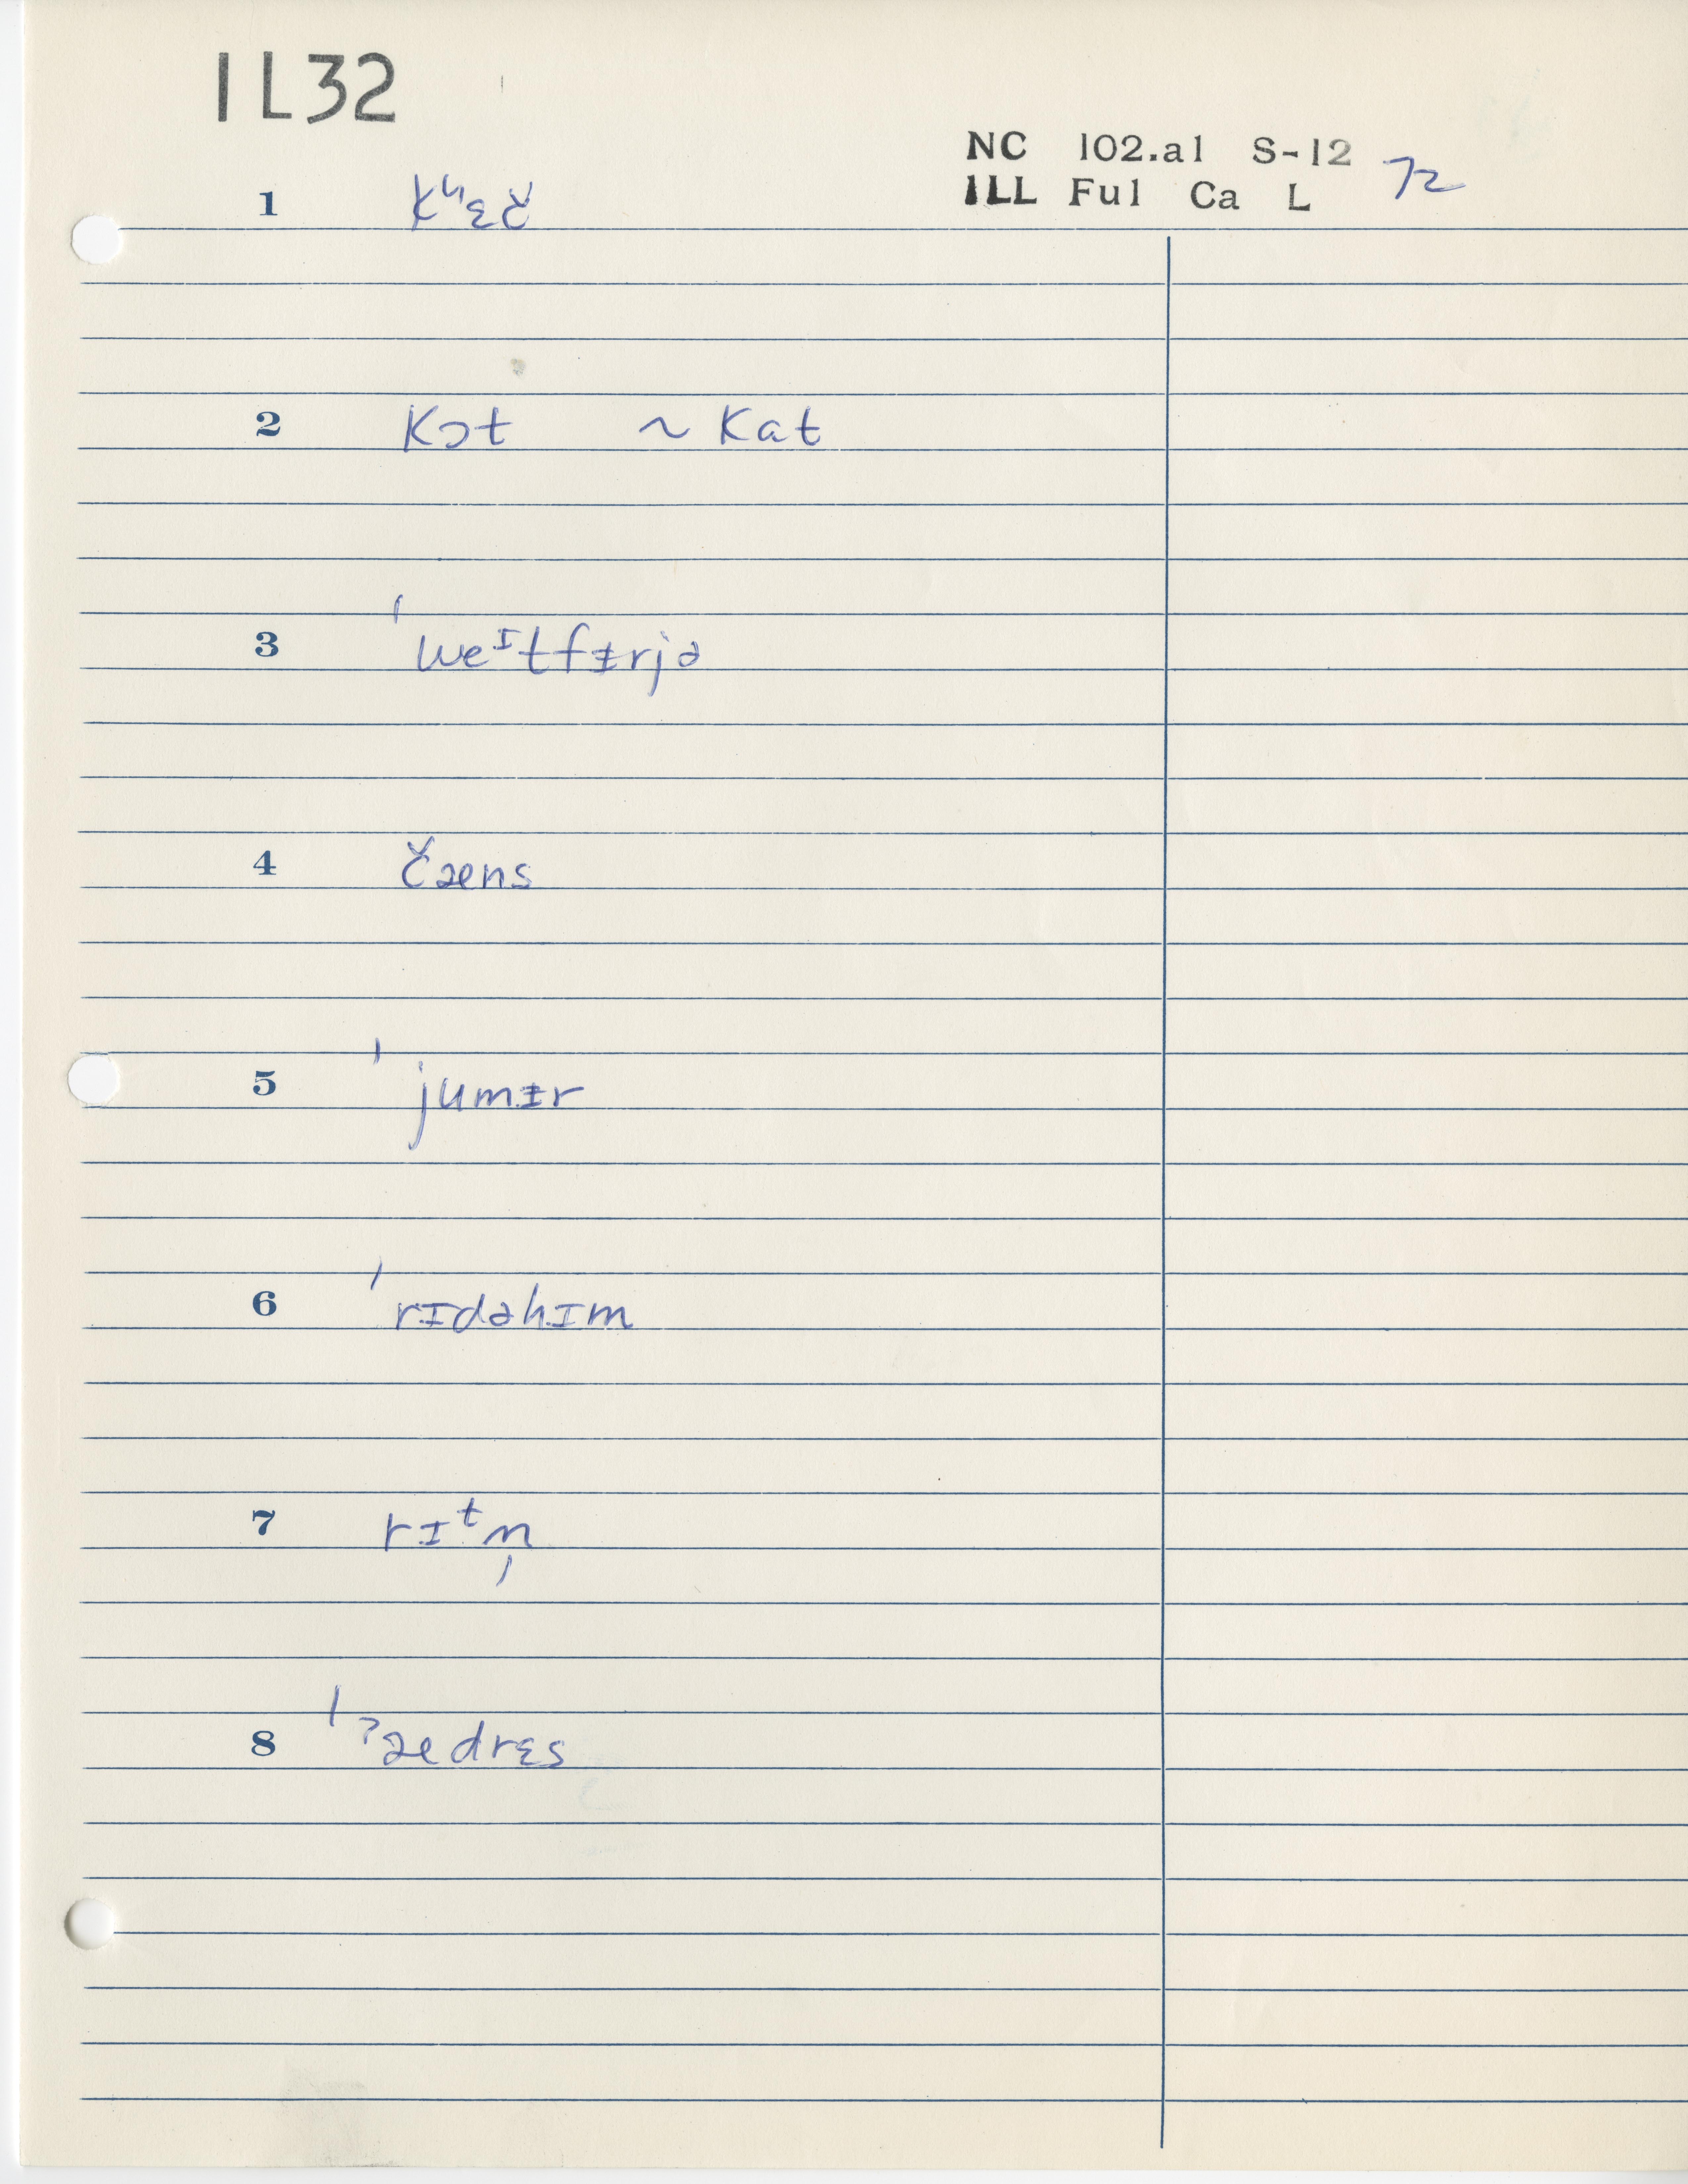 1L32
NC 102.a1 S-12 72
ILL Ful Ca L
1
2 kɔt ~ kat
3 ˈweᶦtfɪrjə
4 čæns
5 ˈjumɪr
6 ˈrɪdəhɪm
7 rɪᵗn̩
8 ˈˀædrɛs